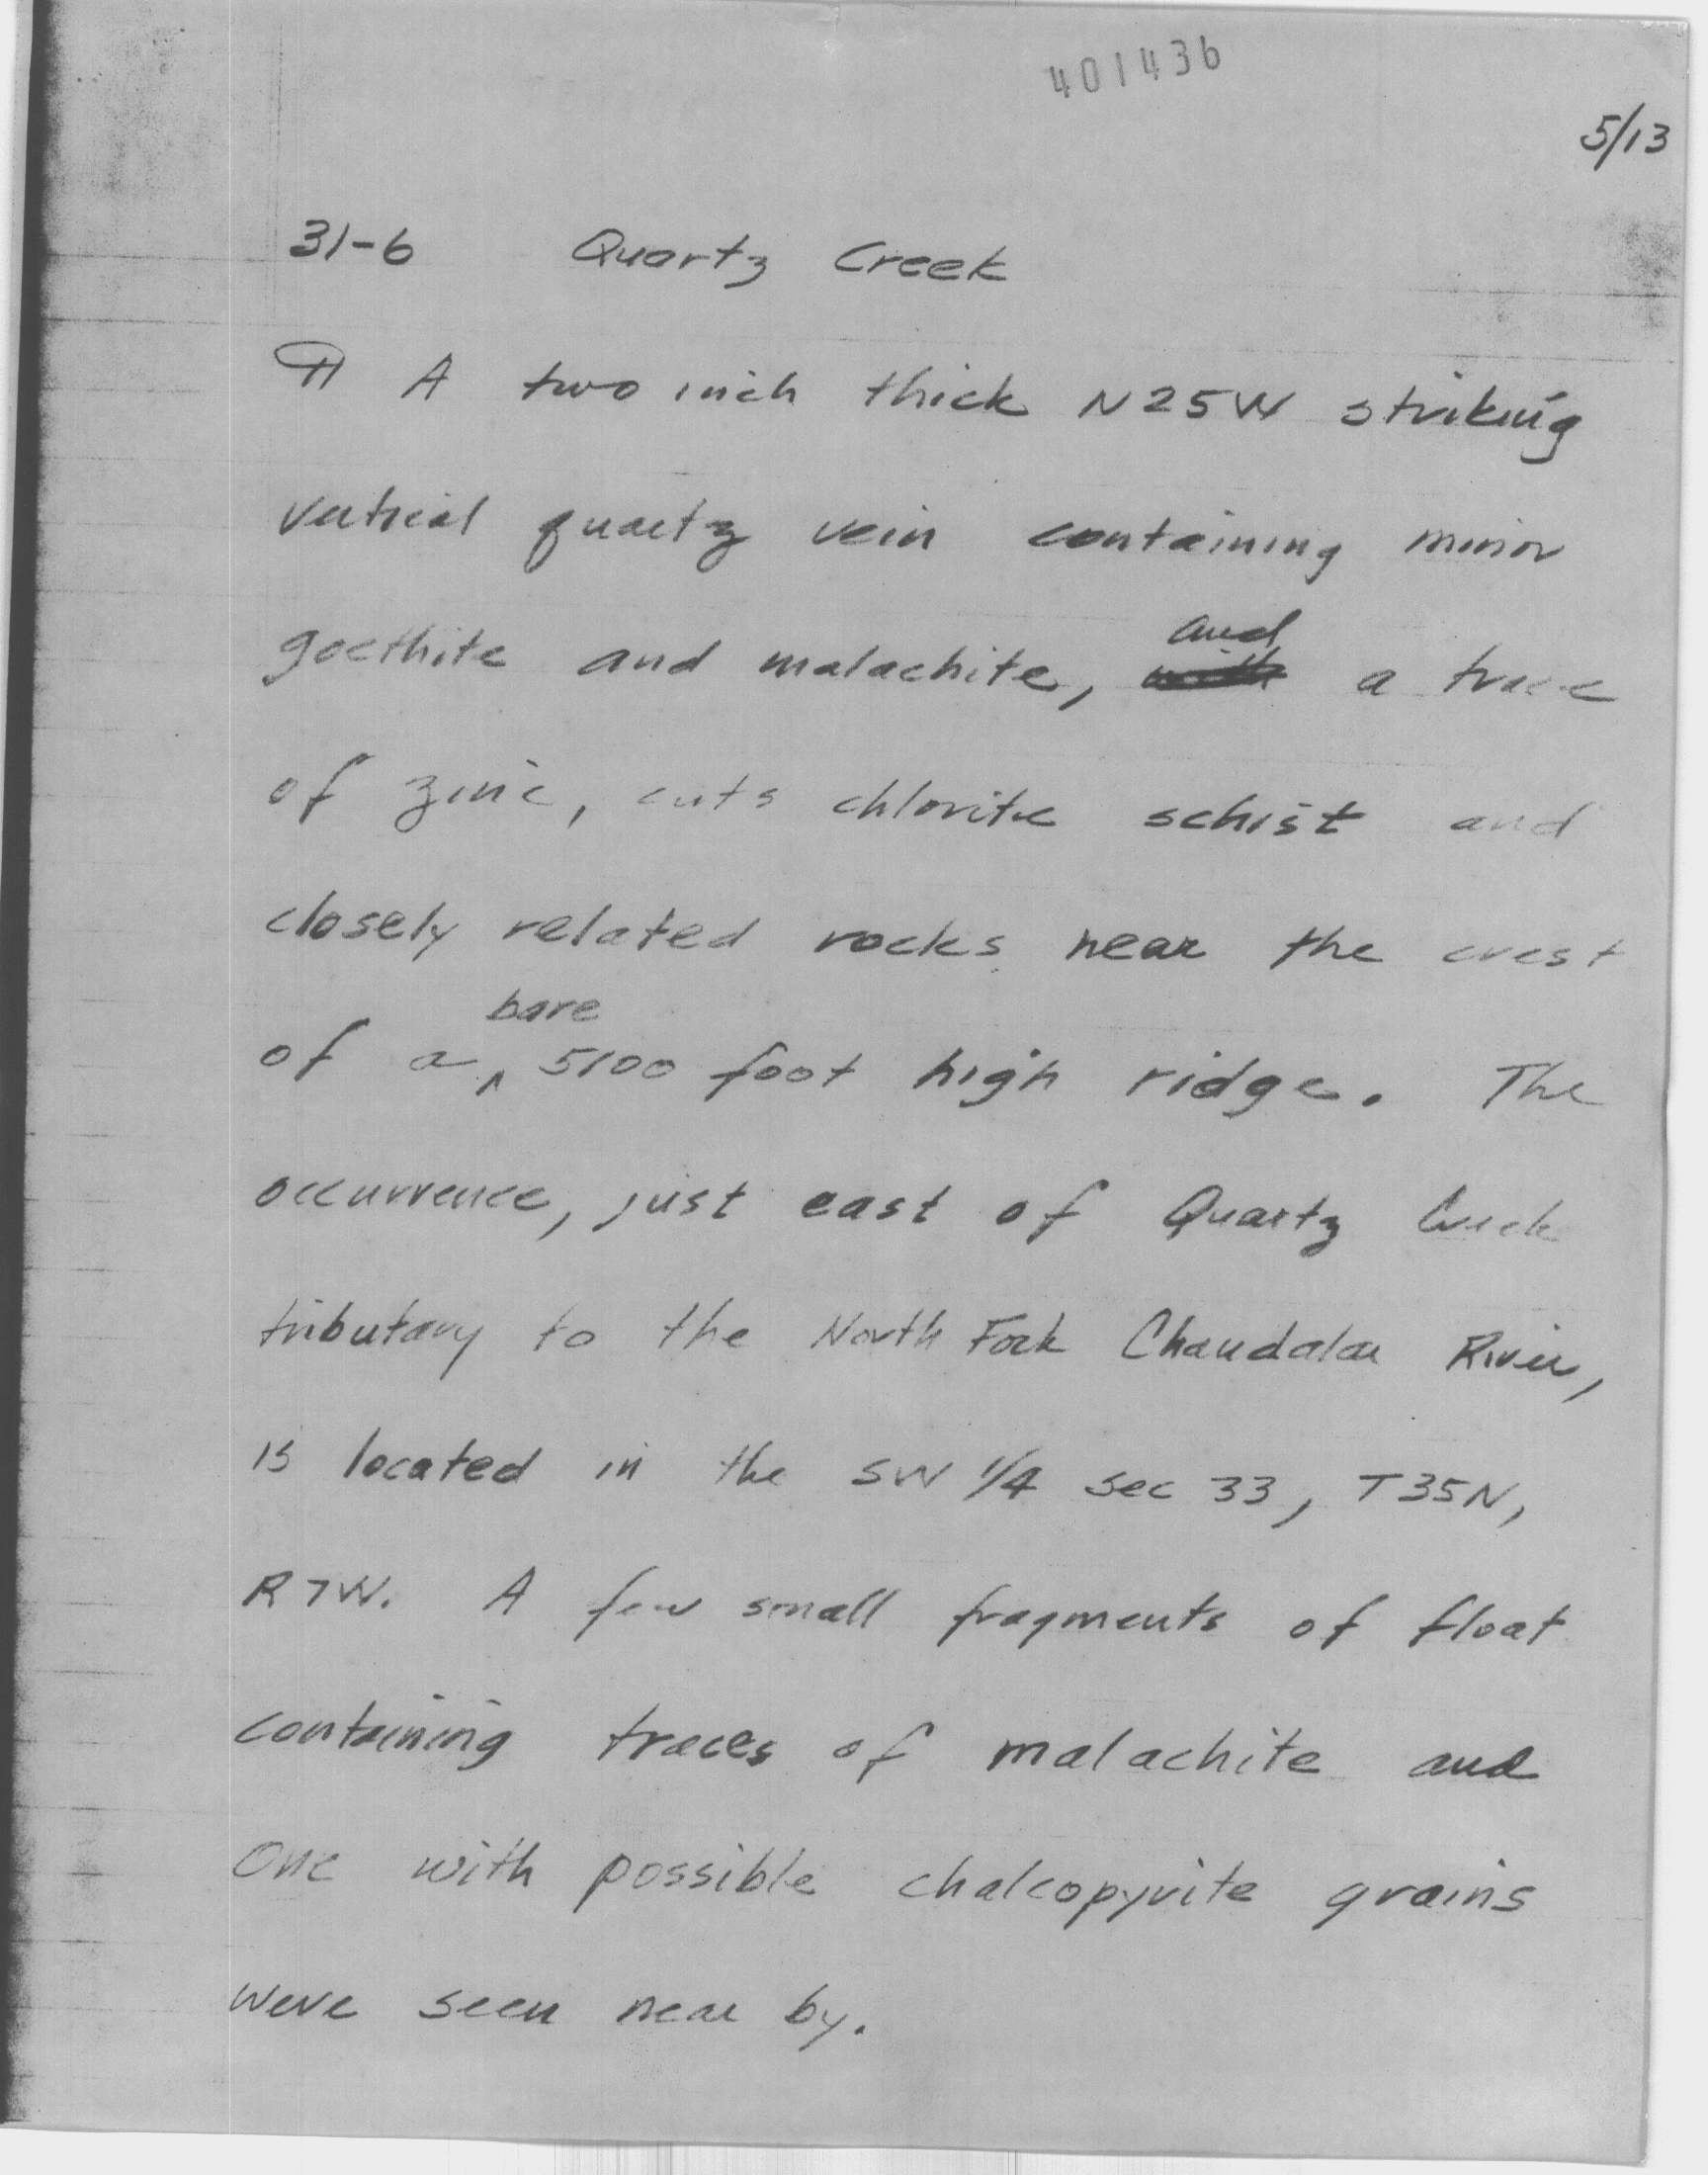 401436
5/13
31-6 Quartz Creek
¶ A two inch thick N25W striking
vertical quartz vein containing minor
goethite and malachite, and a trace
of zinc, cuts chlorite schist and
closely related rocks near the crest
of a bare 5100 foot high ridge. The
occurrence, just east of Quartz Creek
tributary to the North Fork Chandalar River,
is located in the SW 1/4 sec 33, T35N,
R7W. A few small fragments of float
containing traces of malachite and
one with possible chalcopyrite grains
were seen near by.